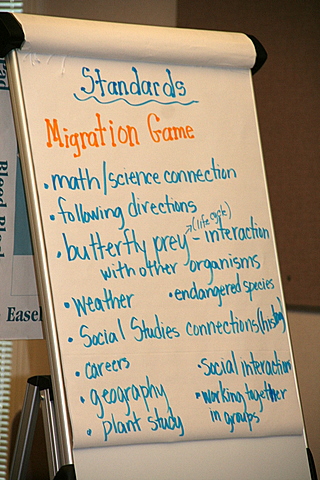 Standards
Migration Game
• math/science connection
• following directions
(life cycle)
• butterfly prey - interaction
with other organisms
• weather • endangered species
• Social Studies connections (history)
• careers • Social interaction
• geography • working together
in groups
• plant study
Easel